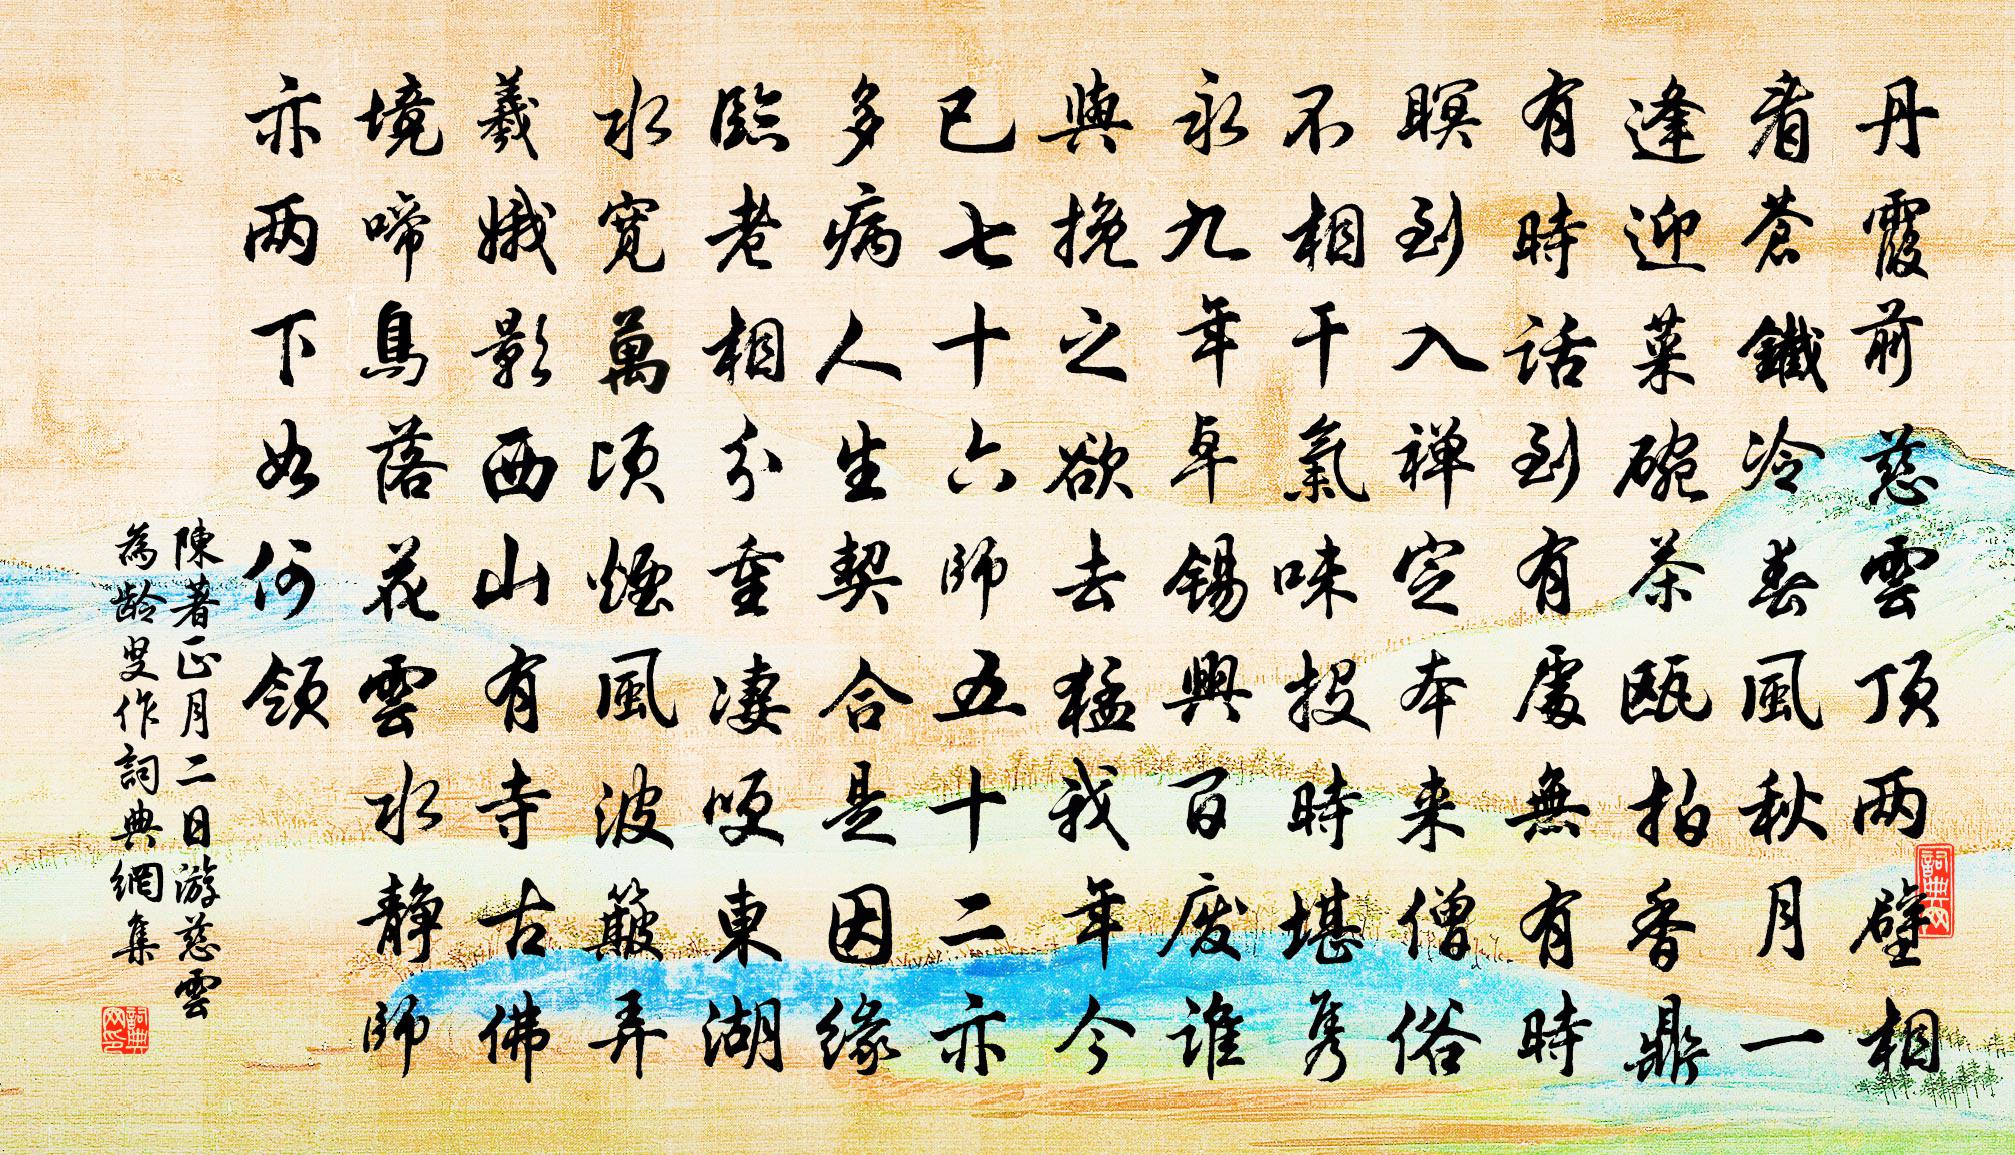 丹霞前慈雲頂两壁相
看蒼鐵冷春風秋月一
逢迎菜碗茶甌拍香鼎
有時話到有處無有時
瞑到入禅定本来僧俗
不相干氣味投時堪隽
永九年卓錫興百废誰
與挽之欲去猛我年今
已七十六師五十二亦
多病人生契合是因緣
臨老相分重凄哽東湖
水寬萬頃煙風波簸弄
羲娥影西山有寺古佛
境啼鳥落花雲水静師
亦两下如何領
陳著正月二日游慈雲
為龄叟作詞典網集
詞典网
詞典网印